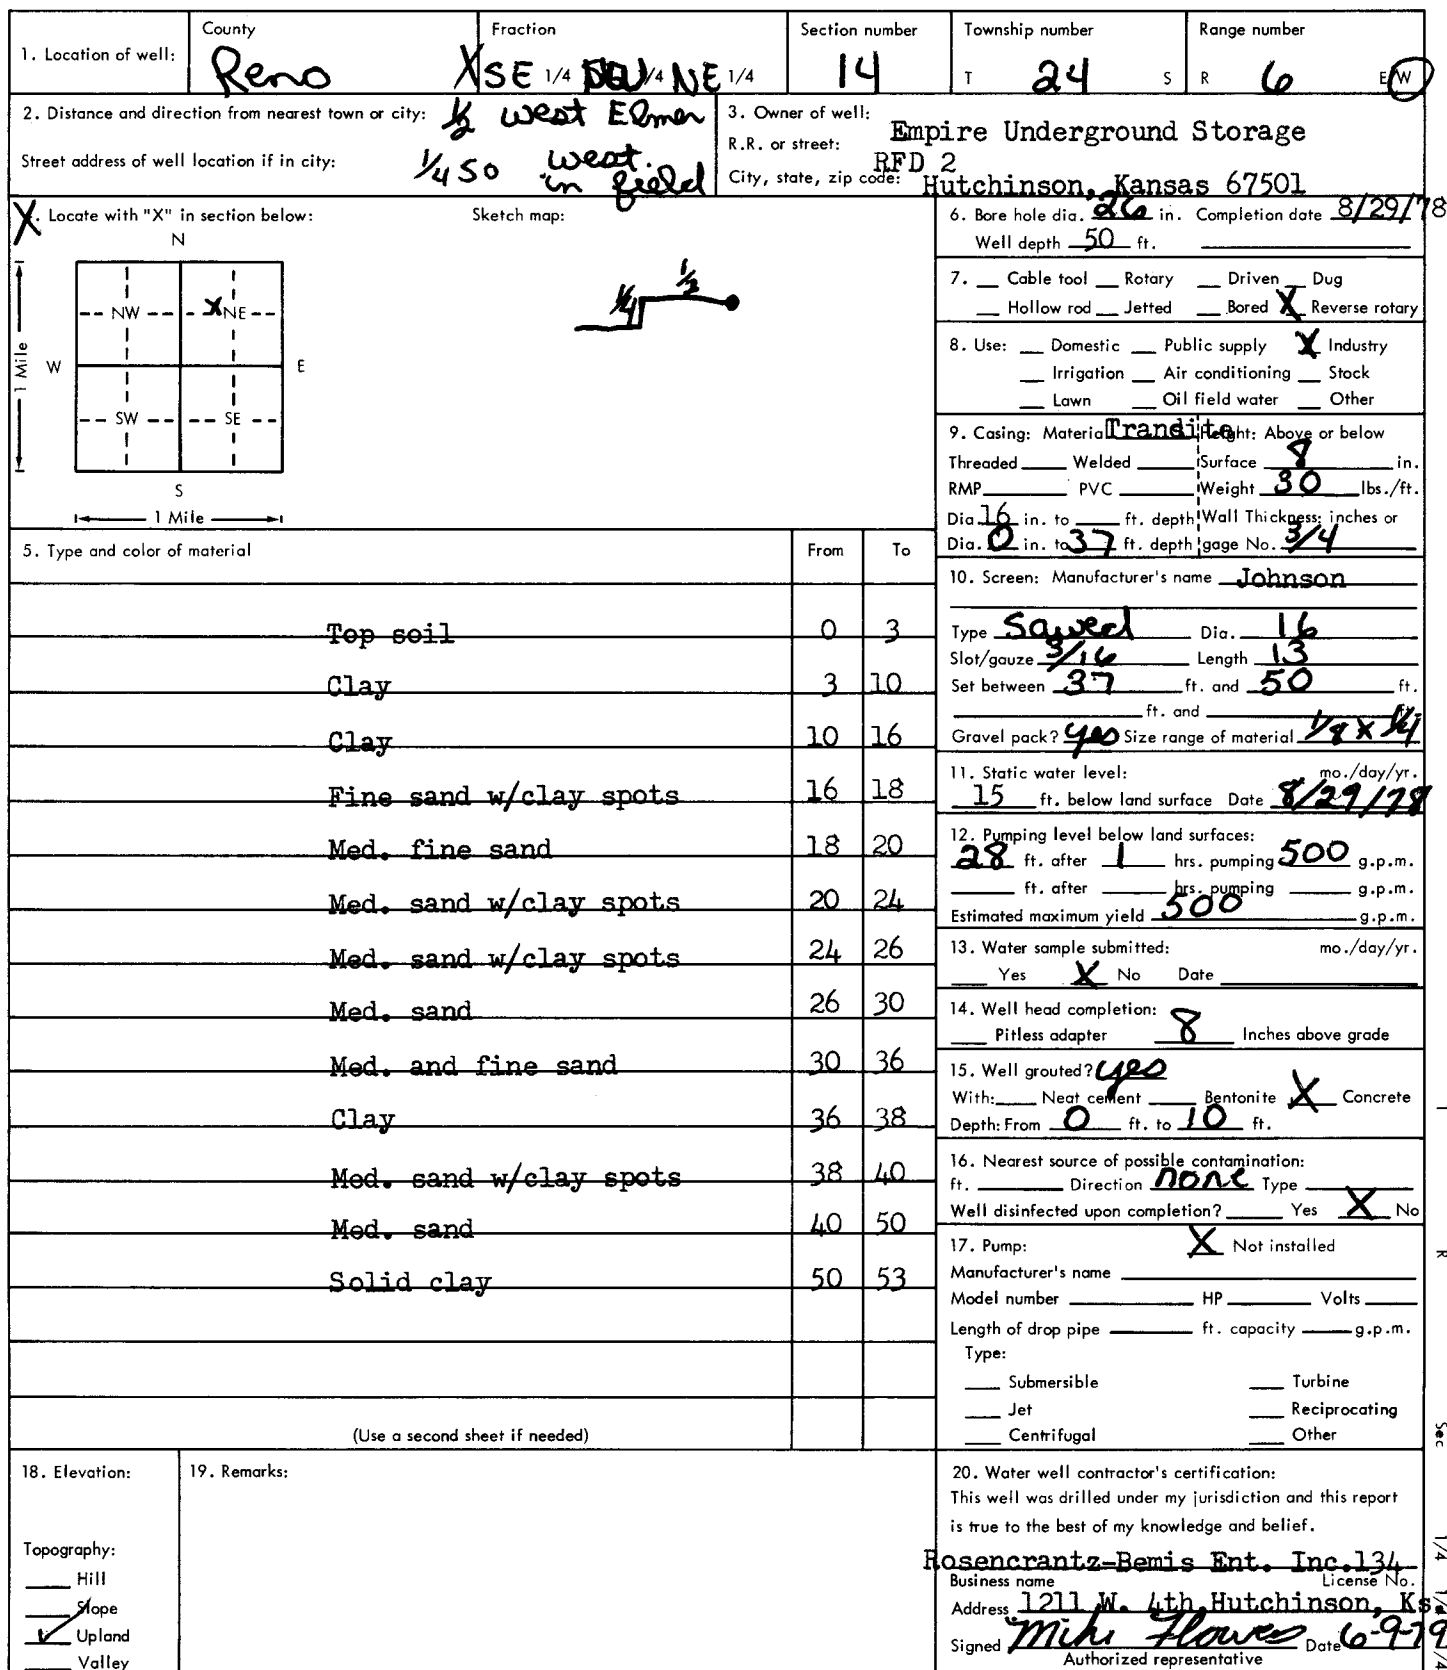 County Fraction Section number Township number Range number
1. Location of well: Reno X SE 1/4 1/4 NE 1/4 14 T 24 S R 6 E W
2. Distance and direction from nearest town or city: 1/2 west Elmer
Street address of well location if in city: 1/4 SO west.
in field
3. Owner of well: Empire Underground Storage
R.R. or street: RFD 2
City, state, zip code: Hutchinson, Kansas 67501
X. Locate with "X" in section below: Sketch map:
N
NW X NE
W E
SW SE
S
1 Mile
1 Mile
1/4 1/2
5. Type and color of material From To
Top soil 0 3
Clay 3 10
Clay 10 16
Fine sand w/clay spots 16 18
Med. fine sand 18 20
Med. sand w/clay spots 20 24
Med. sand w/clay spots 24 26
Med. sand 26 30
Med. and fine sand 30 36
Clay 36 38
Med. sand w/clay spots 38 40
Med. sand 40 50
Solid clay 50 53
(Use a second sheet if needed)
6. Bore hole dia. 26 in. Completion date 8/29/78
Well depth 50 ft.
7. Cable tool Rotary Driven Dug
Hollow rod Jetted Bored X Reverse rotary
8. Use: Domestic Public supply X Industry
Irrigation Air conditioning Stock
Lawn Oil field water Other
9. Casing: Material Trandite Height: Above or below
Threaded Welded Surface 8 in.
RMP PVC Weight 30 lbs./ft.
Dia 16 in. to ft. depth Wall Thickness: inches or
Dia. 0 in. to 37 ft. depth gage No. 3/4
10. Screen: Manufacturer's name Johnson
Type Sawed Dia. 16
Slot/gauze 3/16 Length 13
Set between 37 ft. and 50 ft.
ft. and ft.
Gravel pack? yes Size range of material 1/8 X 1/4
11. Static water level: mo./day/yr.
15 ft. below land surface Date 8/29/78
12. Pumping level below land surfaces:
28 ft. after 1 hrs. pumping 500 g.p.m.
ft. after hrs. pumping g.p.m.
Estimated maximum yield 500 g.p.m.
13. Water sample submitted: mo./day/yr.
Yes X No Date
14. Well head completion:
Pitless adapter 8 Inches above grade
15. Well grouted? yes
With: Neat cement Bentonite X Concrete
Depth: From 0 ft. to 10 ft.
16. Nearest source of possible contamination:
ft. Direction none Type
Well disinfected upon completion? Yes X No
17. Pump: X Not installed
Manufacturer's name
Model number HP Volts
Length of drop pipe ft. capacity g.p.m.
Type:
Submersible Turbine
Jet Reciprocating
Centrifugal Other
18. Elevation:
Topography:
Hill
Slope
✓ Upland
Valley
19. Remarks:
20. Water well contractor's certification:
This well was drilled under my jurisdiction and this report
is true to the best of my knowledge and belief.
Rosencrantz-Bemis Ent. Inc. 134
Business name License No.
Address 1211 W. 4th, Hutchinson, Ks.
Signed Mike Flowers Date 6-9-79
Authorized representative
T
R
Sec
1/4
1/4